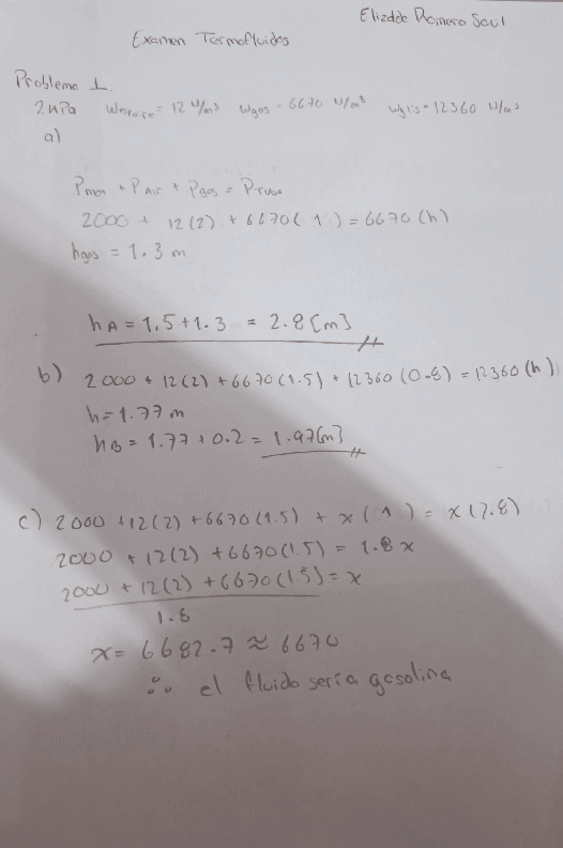 Elizalde Romero Saul
Examen Termofluidos
Problema 1.
2kPa Waire = 12 N/m³ Wgas = 6670 N/m³ Wglis = 12360 N/m³
a)
Pman + PAir + Pgas = PTubo
2000 + 12(2) + 6670(1) = 6670(h)
hgas = 1.3 m
hA = 1.5+1.3 = 2.8[m]
b) 2000 + 12(2) + 6670(1.5) + 12360(0.8) = 12360(h)
h = 1.77 m
hB = 1.77 + 0.2 = 1.97[m]
c) 2000 + 12(2) + 6670(1.5) + x(1) = x(2.8)
2000 + 12(2) + 6670(1.5) = 1.8x
2000 + 12(2) + 6670(1.5) = x
1.8
x = 6682.7 ≈ 6670
∴ el fluido sería gasolina